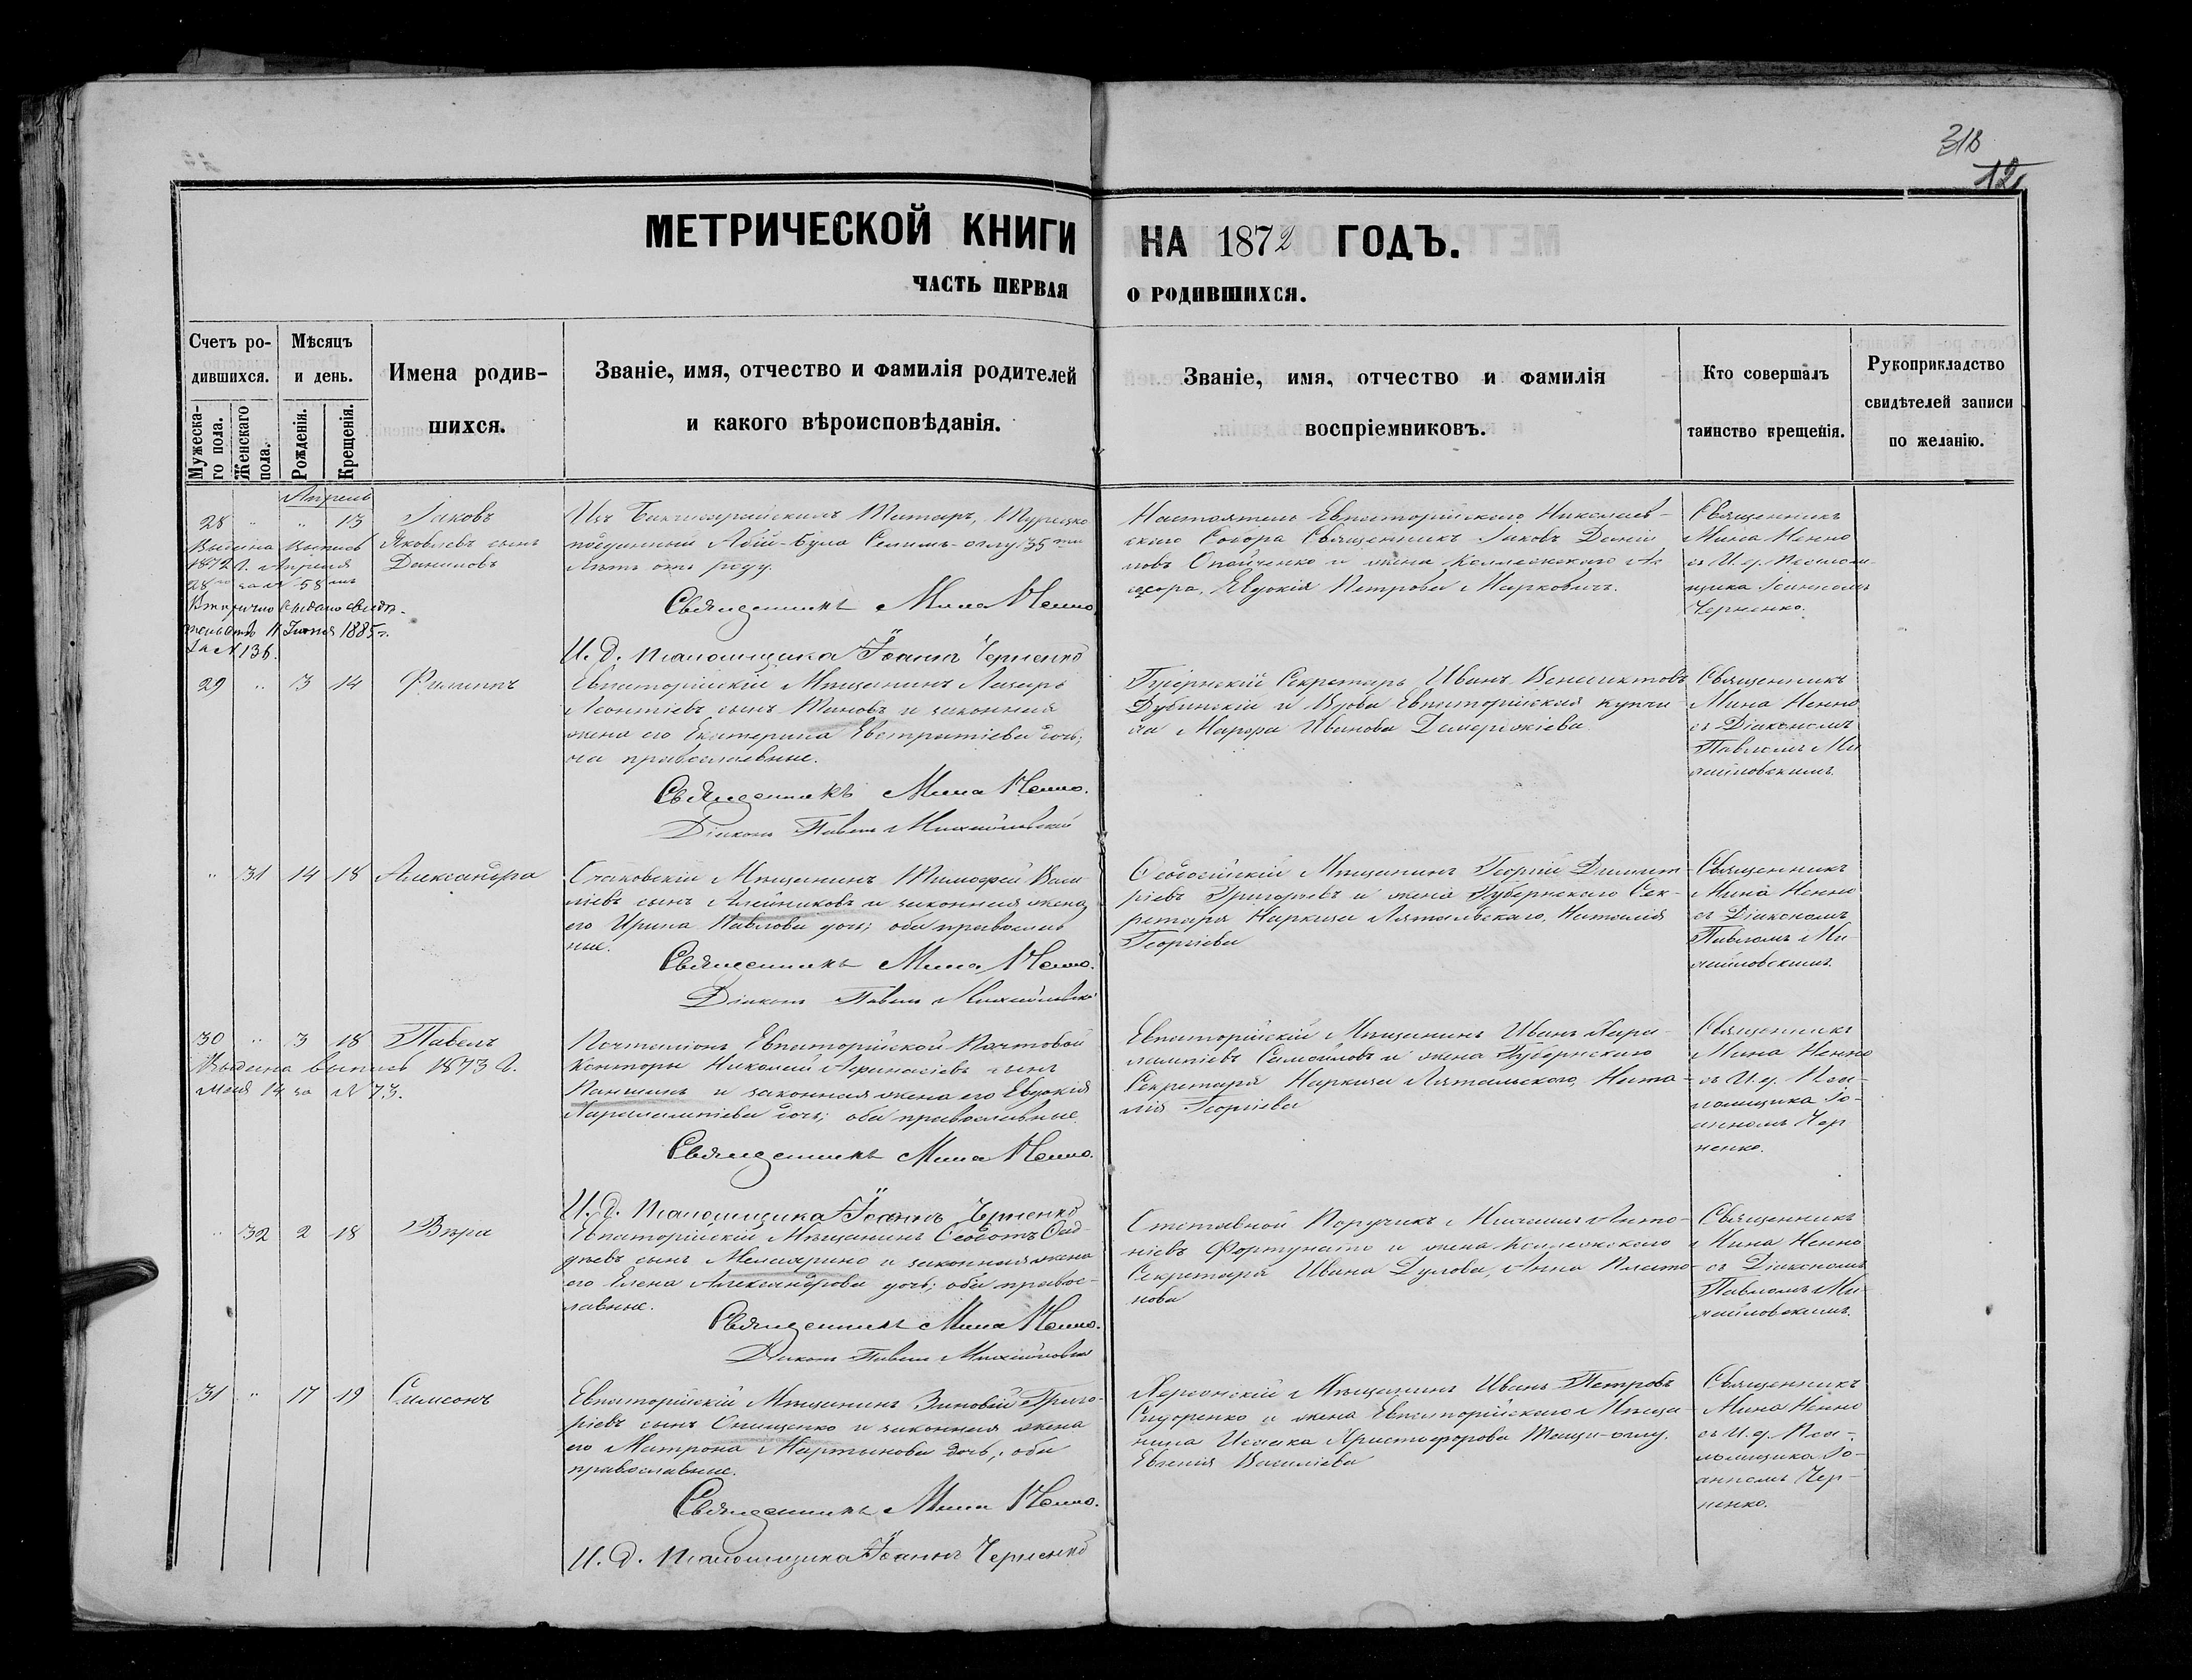 318
12
МЕТРИЧЕСКОЙ КНИГИ НА 1872 ГОДЪ.
ЧАСТЬ ПЕРВАЯ О РОДИВШИХСЯ.
Счетъ ро-
дившихся.
Мужеска-
го пола.
Женскаго
пола.
Мѣсяцъ
и день.
Рожденія.
Крещенія.
Имена родив-
шихся.
Званіе, имя, отчество и фамилія родителей
и какого вѣроисповѣданія.
Званіе, имя, отчество и фамилія
воспріемниковъ.
Кто совершалъ
таинство крещенія.
Рукоприкладство
свидѣтелей записи
по желанію.
Апрель
28 " " 13
Выдана выпись
1872 г. Апреля
28 за № 58
Вторично выдано свидѣ-
тельство 11 Іюня 1885 г.
За № 136.
Іаковъ
Яковлевъ сынъ
Даниловъ
Изъ Бакчисарайскихъ Татаръ, Турецко
подданный Абій-була Селимъ-оглу 35
лѣтъ отъ роду.
Священникъ Мина Ненно
И. д. псаломщика Іоаннъ Черненко
Настоятель Евпаторійскаго Николаев-
скаго Собора Священникъ Іаковъ Дани
ловъ Опойченко и жена Коллежскаго Ас
сесора, Евдокія Петрова Маркович.
Священникъ
Мина Ненно
съ И. д. Псалом-
щика Іоанномъ
Черненко.
29 " 3 14
Филиппъ
Евпаторійскій Мѣщанинъ Лазарь
Леонтіевъ сынъ Тановъ и законная
жена его Екатерина Евстратіева дочь;
оба православные.
Священникъ Мина Ненно.
Діаконъ Павелъ Михайловскій
Губернскій Секретарь Иванъ Венедиктовъ
Дубинскій и Вдова Евпаторійская купчи
ха Марфа Иванова Демержіева
Священникъ
Мина Ненно
съ Діакономъ
Павломъ Ми
хайловскимъ.
" 31 14 18
Александра
Очаковскій Мѣщанинъ Тимофей Васи
ліевъ сынъ Алейниковъ и законная жена
его Ирина Павлова дочь; оба православ
ные.
Священникъ Мина Ненно.
Діаконъ Павелъ Михайловскій
Ѳеодосійскій Мѣщанинъ Георгій Димит
ріевъ Григорьевъ и жена Губернскаго Сек-
ретаря Наркиза Лятальскаго, Наталія
Георгіева
Священникъ
Мина Ненно
съ Діакономъ
Павломъ Ми-
хайловскимъ.
30 " 3 18
Выдана выпись 1873 г.
Мая 14 за № 73.
Павелъ
Почталіонъ Евпаторійской Почтовой
Конторы Николай Афанасіевъ сынъ
Паншинъ и законная жена его Евдокія
Харалампіева дочь; оба православные
Священникъ Мина Ненно.
И. д. псаломщика Іоаннъ Черненко
Евпаторійскій Мѣщанинъ Иванъ Хара-
лампіевъ Самойловъ и жена Губернскаго
Секретаря Наркиза Лятальскаго, Ната-
лія Георгіева
Священникъ
Мина Ненно
съ И. д. Пса-
ломщика Іо-
анномъ Чер
ненко.
" 32 2 18
Вѣра
Евпаторійскій Мѣщанинъ Ѳеодотъ Ѳад-
дѣевъ сынъ и законная жена
его Елена Александрова дочь; оба правос-
лавные.
Священникъ Мина Ненно.
Діаконъ Павелъ Михайловскій
Отставной Поручикъ Михаилъ Анто-
ніевъ Фортунато и жена Коллежскаго
Секретаря Ивана Дулова, Анна Плато-
нова
Священникъ
Мина Ненно
съ Діакономъ
Павломъ Ми
хайловскимъ.
31 " 17 19
Симеонъ
Евпаторійскій Мѣщанинъ Зиновій Григо-
ріевъ сынъ Онищенко и законная жена
его Матрона Мартынова дочь; оба
православные.
Священникъ Мина Ненно.
И. д. псаломщика Іоаннъ Черненко
Херсонскій Мѣщанинъ Иванъ Петровъ
Сидоренко и жена Евпаторійскаго Мѣща-
нина Исаака Христофорова Тащи-оглу.
Евгенія Василіева
Священникъ
Мина Ненно
съ И. д. Пса-
ломщика Іо-
анномъ Чер-
ненко.